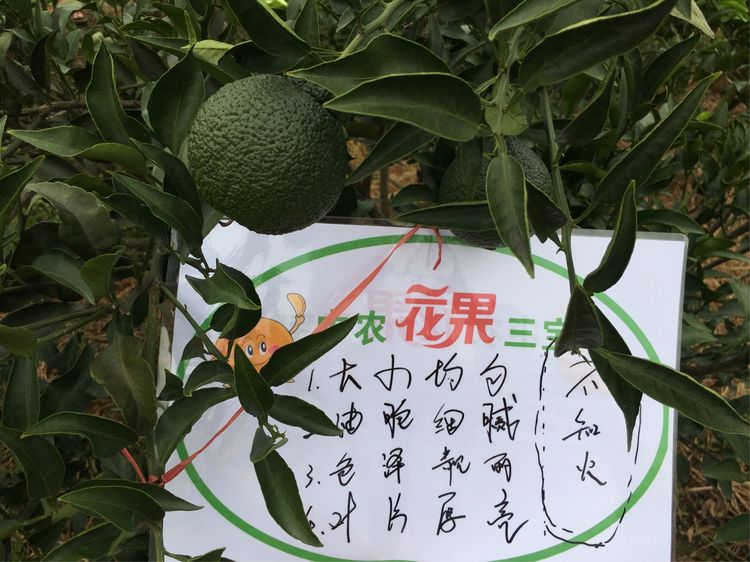 农花果三宝
1.大小均匀
油胞细腻
3.色泽靓丽
4.叶片厚亮
不知火